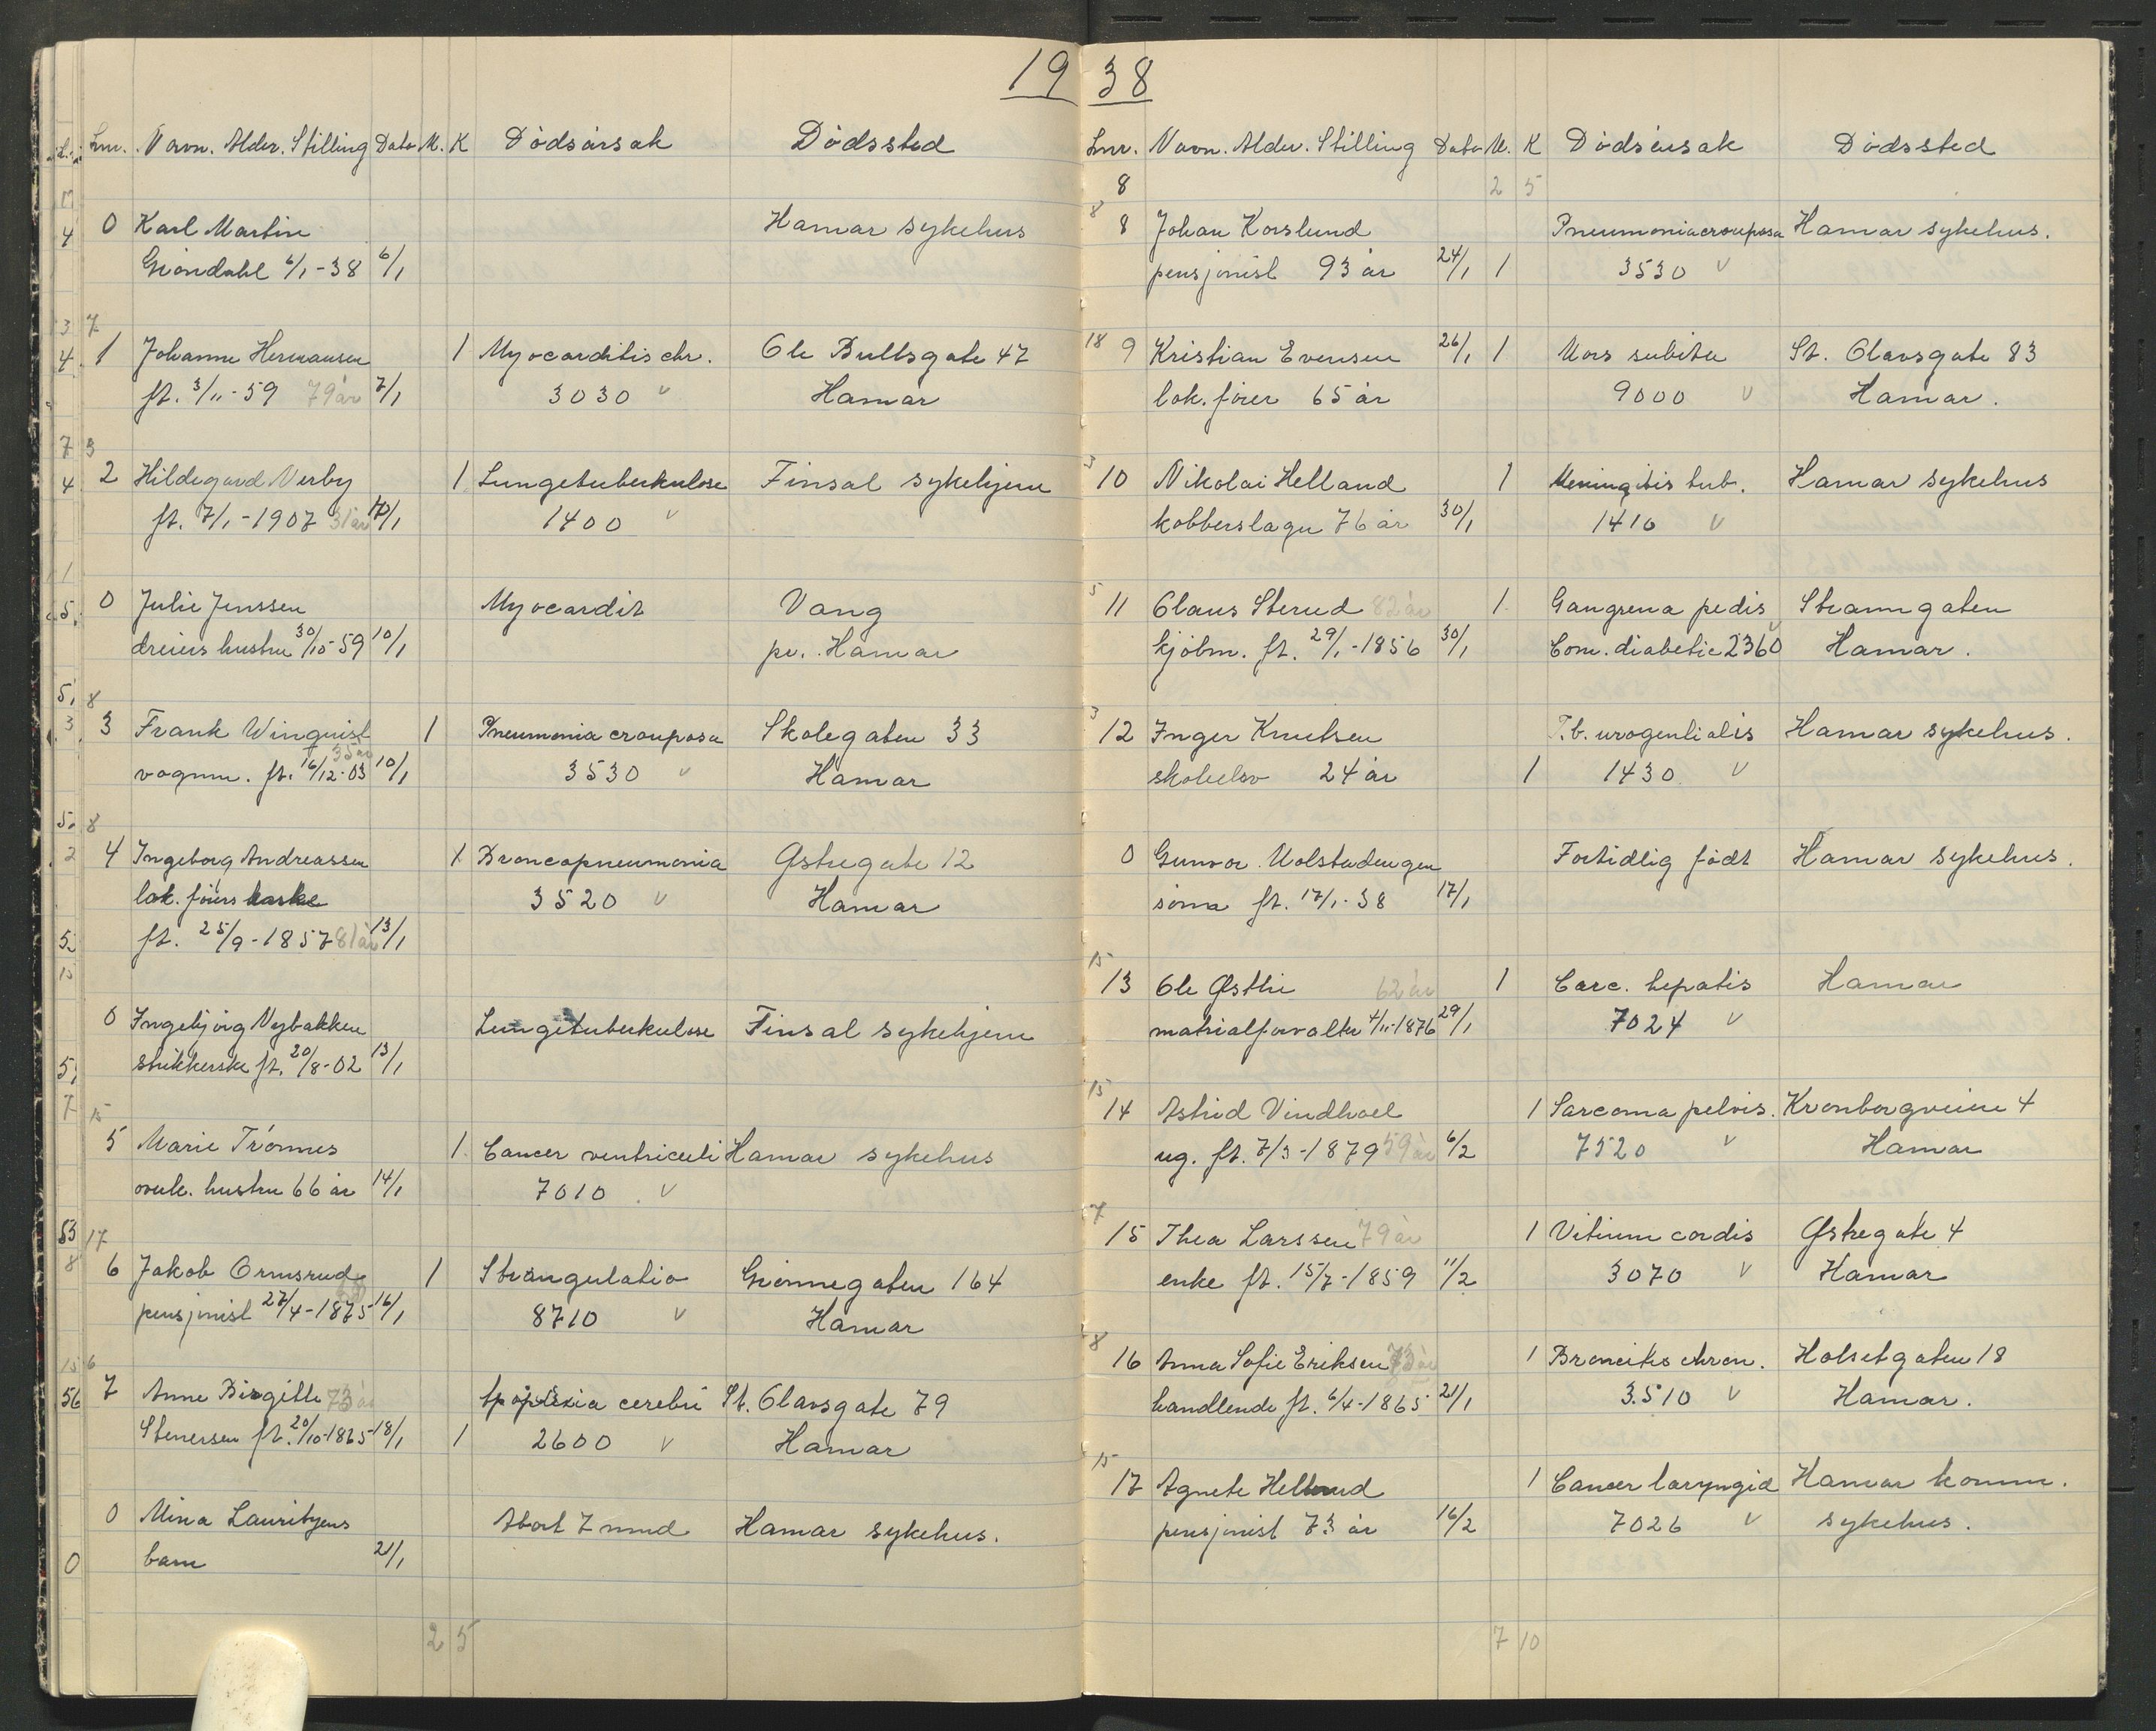 19 38
Lnr. Navn. Alder. Stilling Dato M. K Dødsårsak Dødssted
0 Karl Martin Hamar sykehus
Grøndahl 6/1-38 6/1
7
1 Johanne Hermansen 1 Myocarditis chr. Ole Bullsgate 47
ft. 3/11-59 79 år 7/1 3030 v Hamar
3
2 Hildegard Verby 1 Lungetuberkulose Finsal sykehjem
ft. 7/1-1907 31 år 10/1 1400 v
0 Julie Jenssen Myocardit Vang
dreiers hustru 30/10-59 10/1 pr. Hamar
8
3 Frank Winquist 1 Pneumonia crouposa Skolegaten 33
35 år
vognm. ft. 16/12-03 10/1 3530 v Hamar
8
4 Ingeborg Andreassen 1 Broncopneumonia Østregate 12
lok. førers 3520 v Hamar
ft. 25/9-1857 81 år 13/1
0 Ingebjørg Nybakken Lungetuberkulose Finsal sykehjem
strikkerske ft. 20/8-02 13/1
15
5 Marie Trønnes 1 Cancer ventriculi Hamar sykehus
hustru 66 år 14/1 7010 v
17
6 Jakob Ormsrud 1 Strangulatio Grønnegaten 164
pensjonist 27/4-1875 16/1 8710 v Hamar
6
7 Anne Birgitte 73 år Apoplexia cerebri St. Olavsgate 79
Stenersen ft. 20/10-1865 18/1 1 2600 v Hamar
0 Mina Lauritzens Abort 7 mnd Hamar sykehus.
barn 21/1
2 5
Lnr. Navn. Alder. Stilling Dato M. K Dødsårsak Dødssted
8 2 5
8
8 Johan Korslund Pneumonia crouposa Hamar sykehus.
pensjonist 93 år 24/1 1 3530 v
18
9 Kristian Evensen 26/1 1 Mors subita St. Olavsgate 83
lok. fører 65 år 9000 v Hamar.
3
10 Nikolai Helland 1 Meningitis tub. Hamar sykehus
kobberslager 76 år 30/1 1410 v
5
11 Claus Sterud 82 år 1 Gangrena pedis Strandgaten
kjøbm. ft. 29/1-1856 30/1 Com. diabetic 2360 v Hamar.
3
12 Inger Knutsen T.b. urogentialis Hamar sykehus.
skoleelev 24 år 1 1430 v
0 Gunvor Molstadengen Fortidlig født Hamar sykehus.
ft. 17/1-38 17/1
15
13 Ole Østlie 62 år 1 Carc. hepatis Hamar
matrialforvalter 4/11-1876 29/1 7024 v
15
14 Astrid Vindhoel 1 Sarcoma pelvis. Kronborgveien 4
ug. ft. 7/3-1879 59 år 6/2 7520 v Hamar
7
15 Thea Larssen 79 år 1 Vitium cordis Østregate 4
enke ft. 15/7-1859 11/2 3070 v Hamar
8
16 Anna Sofie Eriksen 73 år 1 Broncitis chron. Holsetgaten 18
handlende ft. 6/4-1865 21/1 3510 v Hamar.
15
17 Agnete 1 Cancer laryngid Hamar komm.
pensjonist 73 år 16/2 7026 v sykehus.
7 10